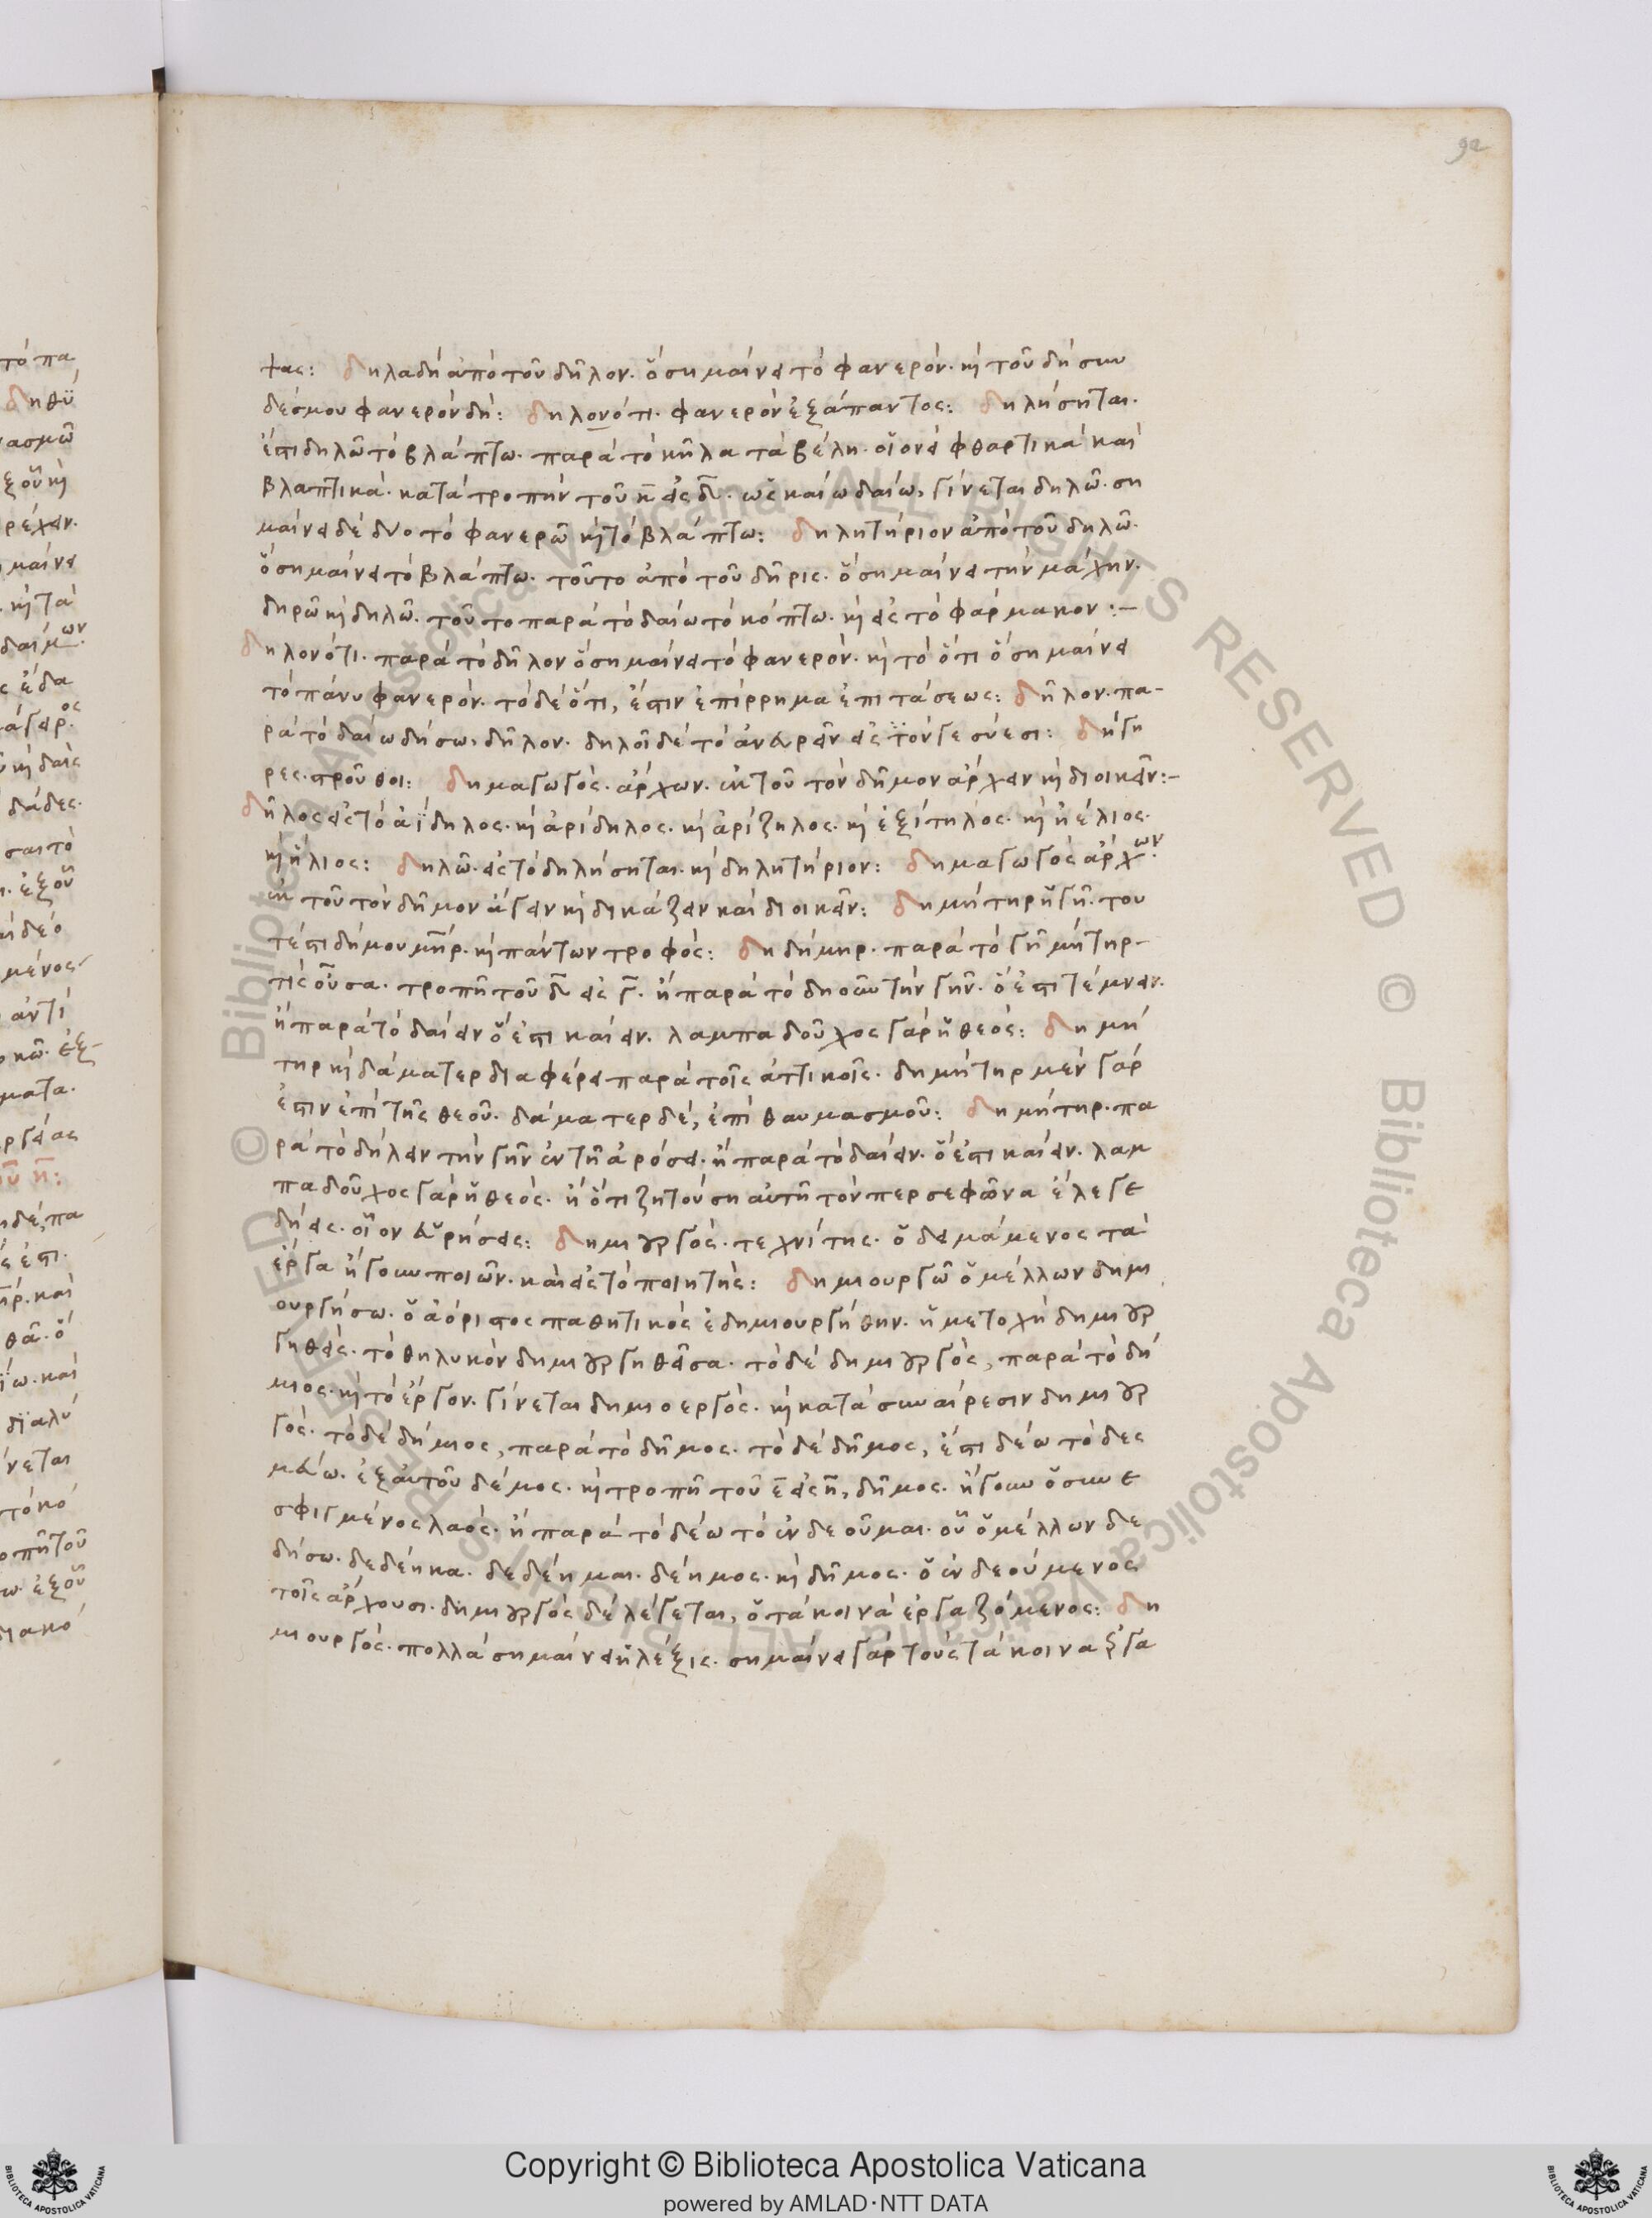 92
ψας: δηλαδή ἀπὸ τοῦ δῆλον. ὃ σημαίνει τὸ φανερόν. καὶ τοῦ δή συν
δέσμου φανερὸν δή: δηλονότι. φανερὸν ἐξάπαντος: δηλήσηται.
ἐστι δηλῶ τὸ βλάπτω. παρὰ τὸ κῆλα τὰ βέλη. οἱονεὶ φθαρτικὰ καὶ
βλαπτικά. κατὰ τροπὴν τοῦ κ εἰς δ. ὡς καίω δαίω, γίνεται δηλῶ. ση
μαίνει δὲ δύο τὸ φανερῶ καὶ τὸ βλάπτω: δηλητήριον ἀπὸ τοῦ δηλῶ.
ὃ σημαίνει τὸ βλάπτω. τοῦτο ἀπὸ τοῦ δῆρις. ὃ σημαίνει τὴν μάχην.
δηρῶ καὶ δηλῶ. τοῦτο παρὰ τὸ δαίω τὸ κόπτω. καὶ εἰς τὸ φάρμακον:–
δηλονότι. παρὰ τὸ δῆλον ὃ σημαίνει τὸ φανερόν. καὶ τὸ ὅτι ὃ σημαίνει
τὸ πάνυ φανερόν. τὸ δὲ ὅτι, ἔστιν ἐπίρρημα ἐπιτάσεως: δῆλον. πα-
ρὰ τὸ δαίω δήσω, δῆλον. δηλοῖ δὲ τὸ ἀνδρεῖν εἰς τόν γε σύεσι: δήγη
ρες. στροῦθοι: δημαγωγός. ἄρχων. ἐκ τοῦ τὸν δῆμον ἄρχειν καὶ διοικεῖν:–
δῆλος εἰς τὸ ἀΐδηλος. καὶ ἀρίδηλος. καὶ ἀρίζηλος. καὶ ἐξίτηλος. καὶ ἠέλιος.
καὶ ἥλιος: δηλῶ. εἰς τὸ δηλήσηται. καὶ δηλητήριον: δημαγωγὸς ἄρχων.
ἐκ τοῦ τὸν δῆμον ἄγειν καὶ δικάζειν καὶ διοικεῖν: δημήτηρ ἡ γῆ. του
τέστι δήμου μήτηρ. καὶ πάντων τροφός: δηδήμηρ. παρὰ τὸ γῆ μήτηρ-
τις οὖσα. τροπῇ τοῦ δ εἰς γ. ἢ παρὰ τὸ δηοῦν τὴν γῆν. ὅ ἐστι τέμνειν.
ἢ παρὰ τὸ δαίειν ὅ ἐστι καίειν. λαμπαδοῦχος γὰρ ἡ θεός: δημή
τηρ καὶ δάματερ διαφέρει παρὰ τοῖς ἀττικοῖς. δημήτηρ μὲν γάρ
ἐστιν ἐπὶ τῆς θεοῦ. δάματερ δέ, ἐπὶ θαυμασμοῦ: δημήτηρ. πα
ρὰ τὸ δήλειν τὴν γῆν ἐν τῇ ἀρόσει. ἢ παρὰ τὸ δαίειν. ὅ ἐστι καίειν. λαμ
παδοῦχος γὰρ ἡ θεός. ἢ ὅτι ζητούσῃ αὐτῇ τὸν περσεφῶνα ἔλεγε
δήεις. οἷον εὑρήσεις: δημιουργός. τεχνίτης. ὁ δειμάμενος τὰ
ἔργα ἤγουν ποιῶν. καὶ εἰς τὸ ποιητής: δημιουργῶ ὁ μέλλων δημι
ουργήσω. ὁ ἀόριστος παθητικὸς ἐδημιουργήθην. ἡ μετοχὴ δημιουρ
γηθείς. τὸ θηλυκὸν δημιουργηθεῖσα. τὸ δὲ δημιουργός, παρὰ τὸ δή
μιος. καὶ τὸ ἔργον. γίνεται δημιοεργός. καὶ κατὰ συναίρεσιν δημιουρ
γός. τὸ δὲ δήμιος, παρὰ τὸ δῆμος. τὸ δὲ δῆμος, ἔστι δέω τὸ δες
μεύω. ἐξ αὐτοῦ δέμος. καὶ τροπῇ τοῦ ε εἰς η, δῆμος. ἤγουν ὁ συνε
σφιγμένος λαός. ἢ παρὰ τὸ δέω τὸ ἐνδεοῦμαι. οὗ ὁ μέλλων δε
δήσω. δεδέηκα. δεδέημαι. δέημος. καὶ δῆμος. ὁ ἐνδεούμενος
τοῖς ἄρχουσι. δημιουργὸς δὲ λέγεται, ὁ τὰ κοινὰ ἐργαζόμενος: δη
μιουργός. πολλὰ σημαίνει ἡ λέξις. σημαίνει γὰρ τοὺς τὰ κοινὰ ἔργα
Copyright © Biblioteca Apostolica Vaticana
powered by AMLAD·NTT DATA